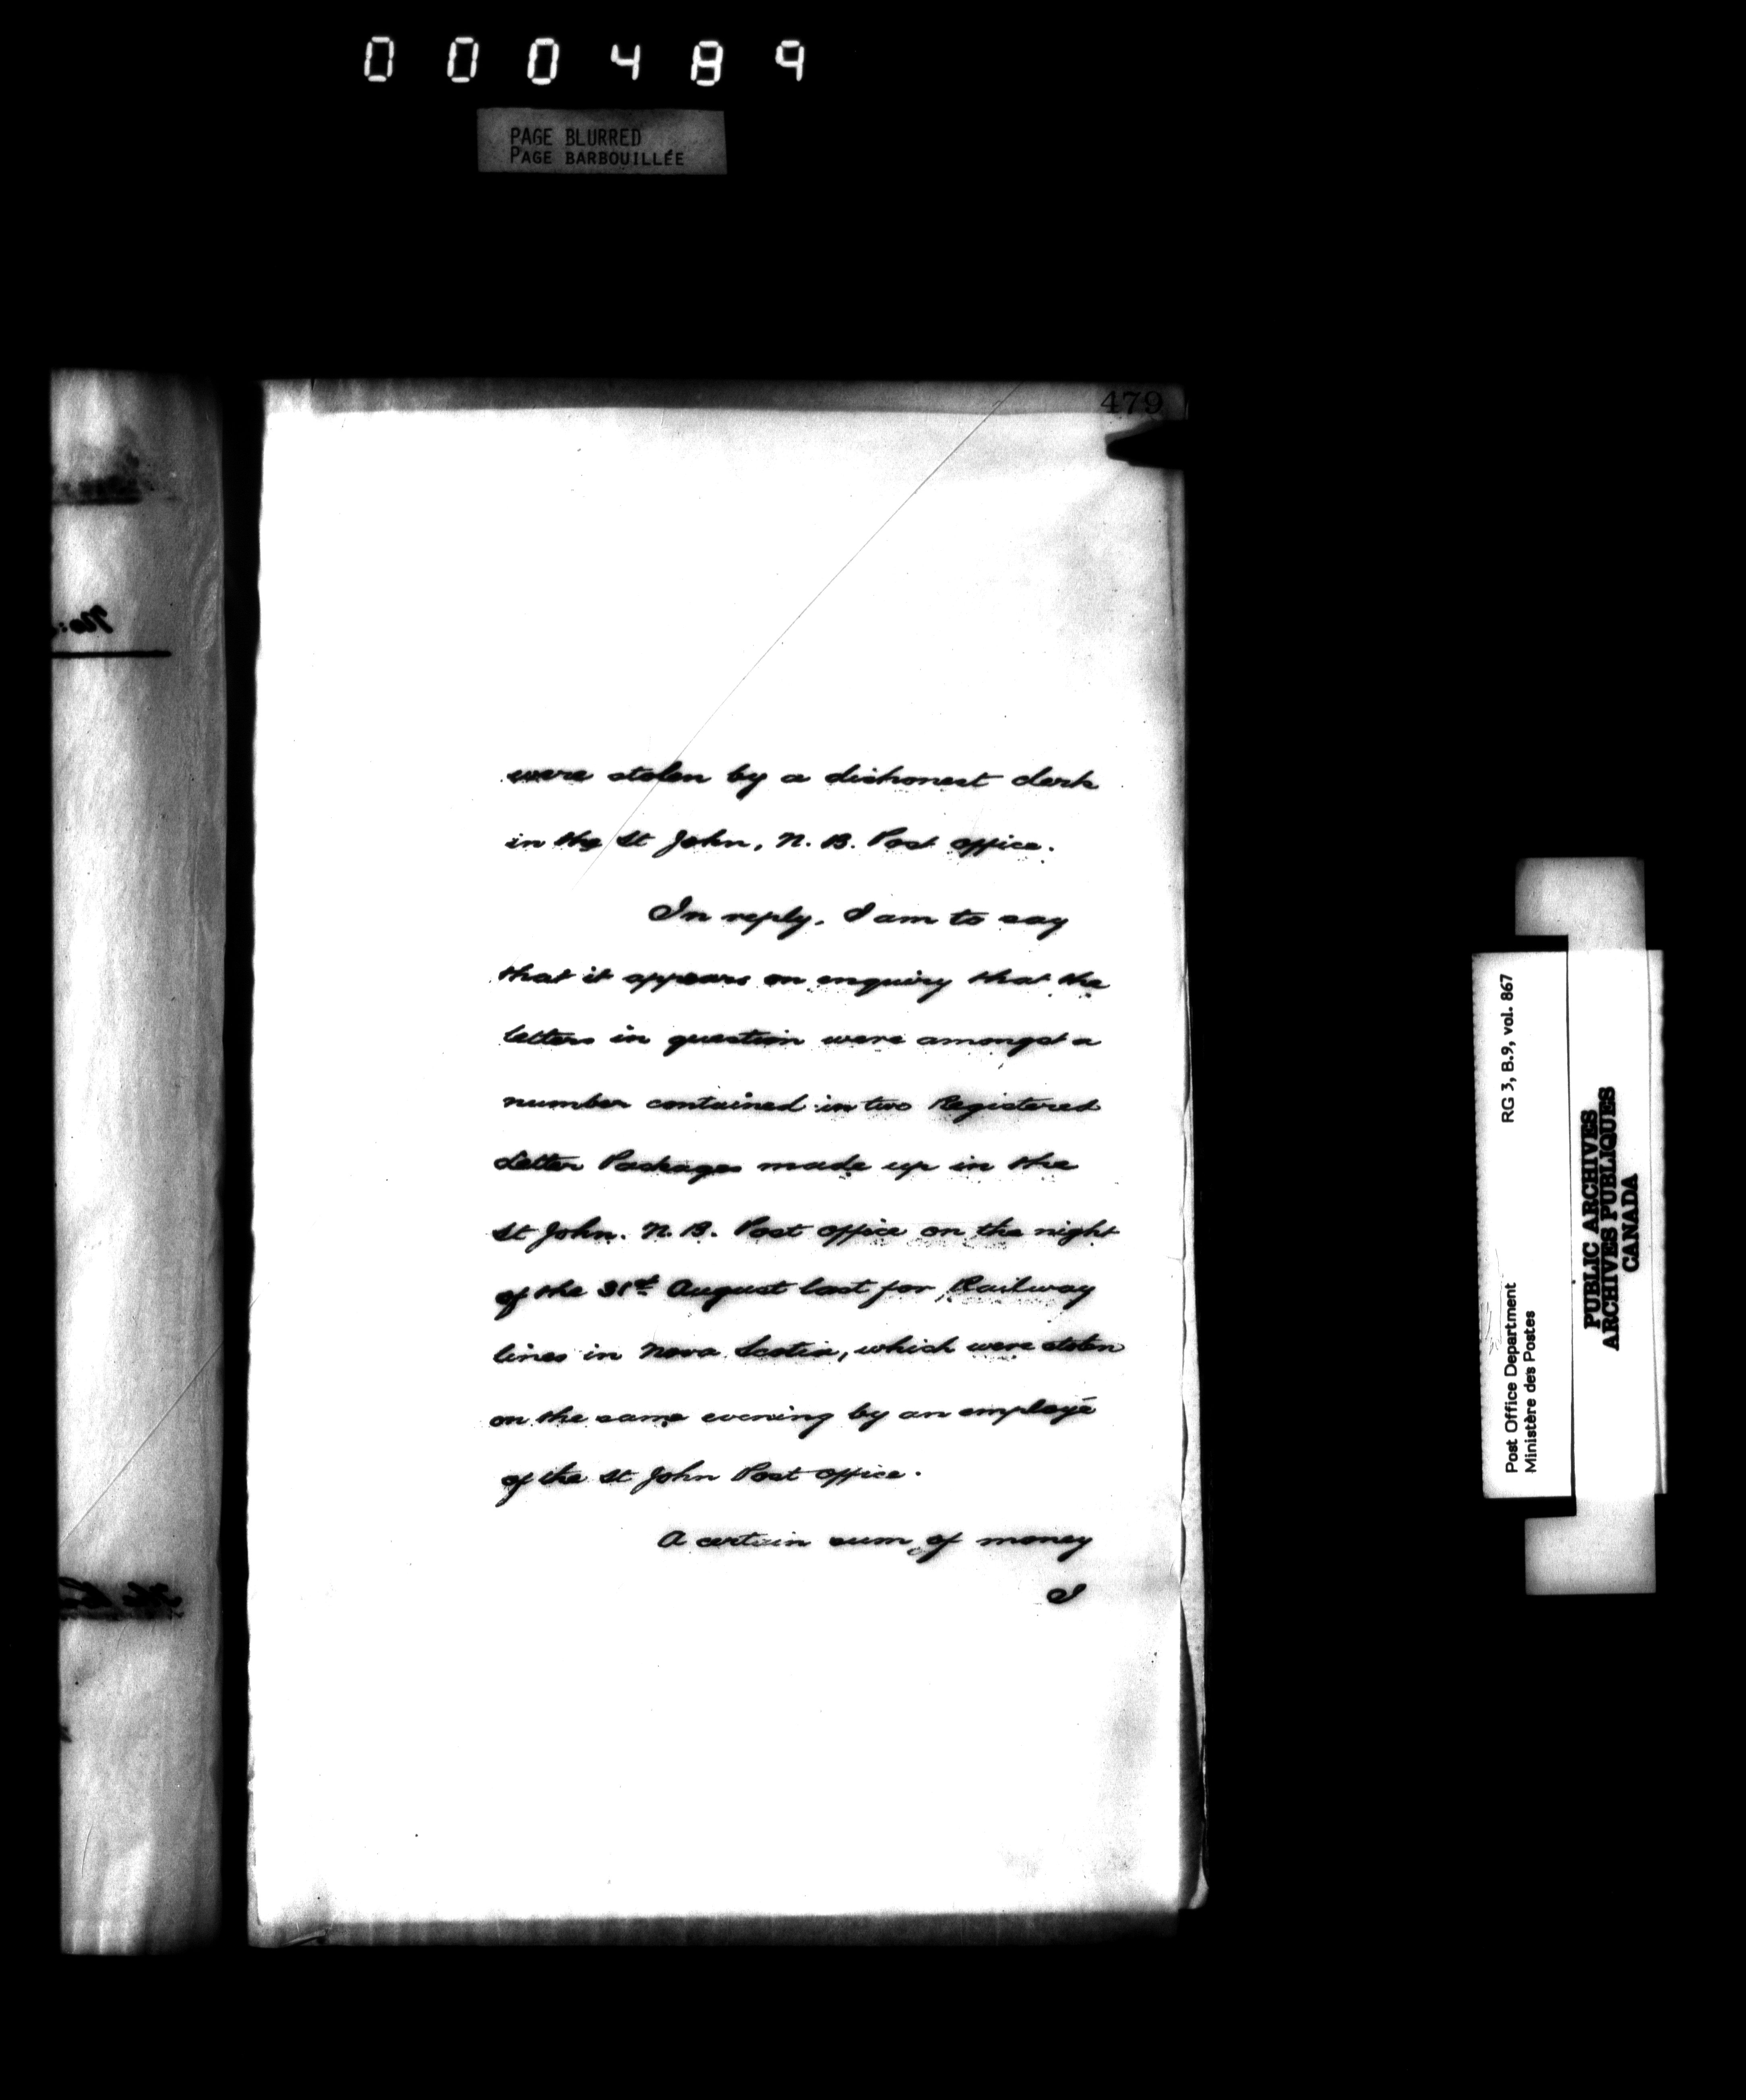 000489
PAGE BLURRED
PAGE BARBOUILLÉE
479
were stolen by a dishonest clerk
in the St John, N. B. Post office.
In reply, I am to say
that it appears on enquiry that the
letters in question were amongst a
number contained in two Registered
Letter Packages made up in the
St John. N. B. Post office on the night
of the 31st August last for Railway
lines in Nova Scotia, which were stolen
on the same evening by an employé
of the St John Post office.
A certain sum of money
I
No:
RG 3, B.9, vol. 867
Post Office Department
Ministère des Postes
PUBLIC ARCHIVES
ARCHIVES PUBLIQUES
CANADA